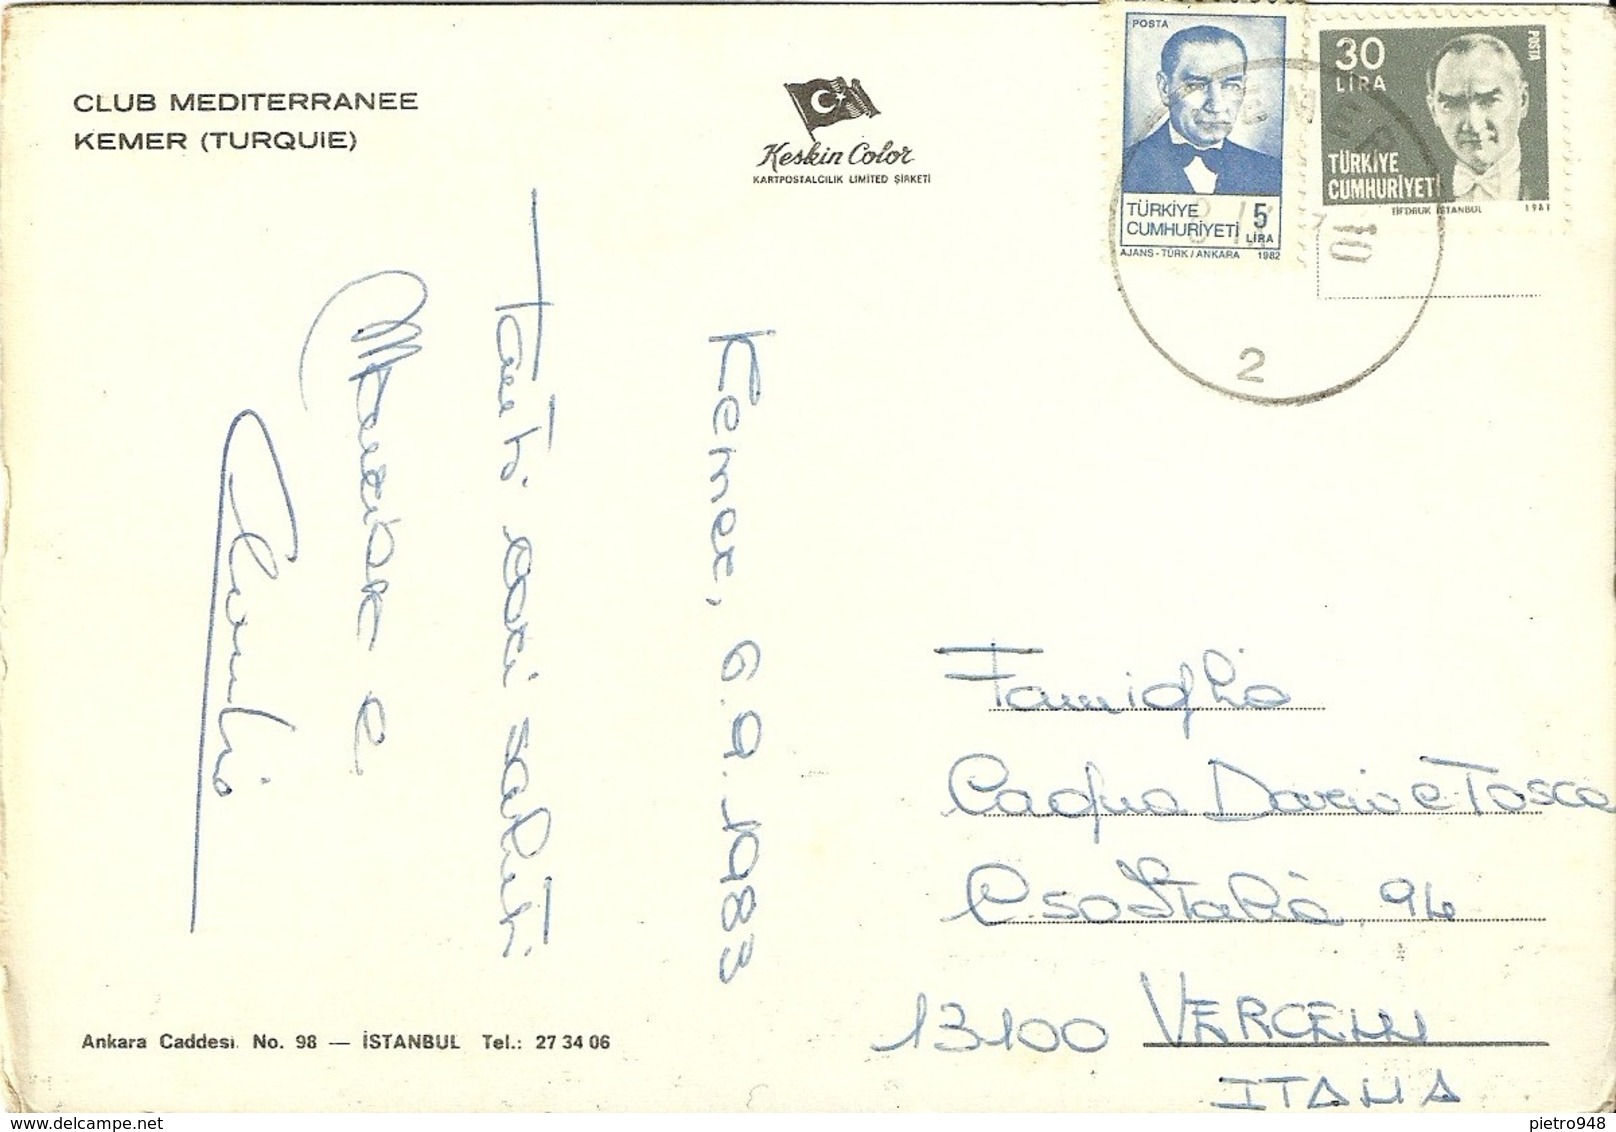 CLUB MEDITERRANEE
KEMER (TURQUIE)
Keskin Color
KARTPOSTALCILIK LIMITED ŞİRKETİ
POSTA
TÜRKİYE
CUMHURİYETİ
5
LİRA
AJANS - TÜRK / ANKARA 1982
30
LİRA
POSTA
TÜRKİYE
CUMHURİYETİ
TİFDRUK İSTANBUL 1981
KEMER
10
2
Kemer, 6.9.1983
Tanti cari saluti
e
Famiglia
Dario e Tosca
C.so Italia 94
13100 VERCELLI
ITALIA
Ankara Caddesi No. 98 — İSTANBUL Tel.: 27 34 06
pietro948